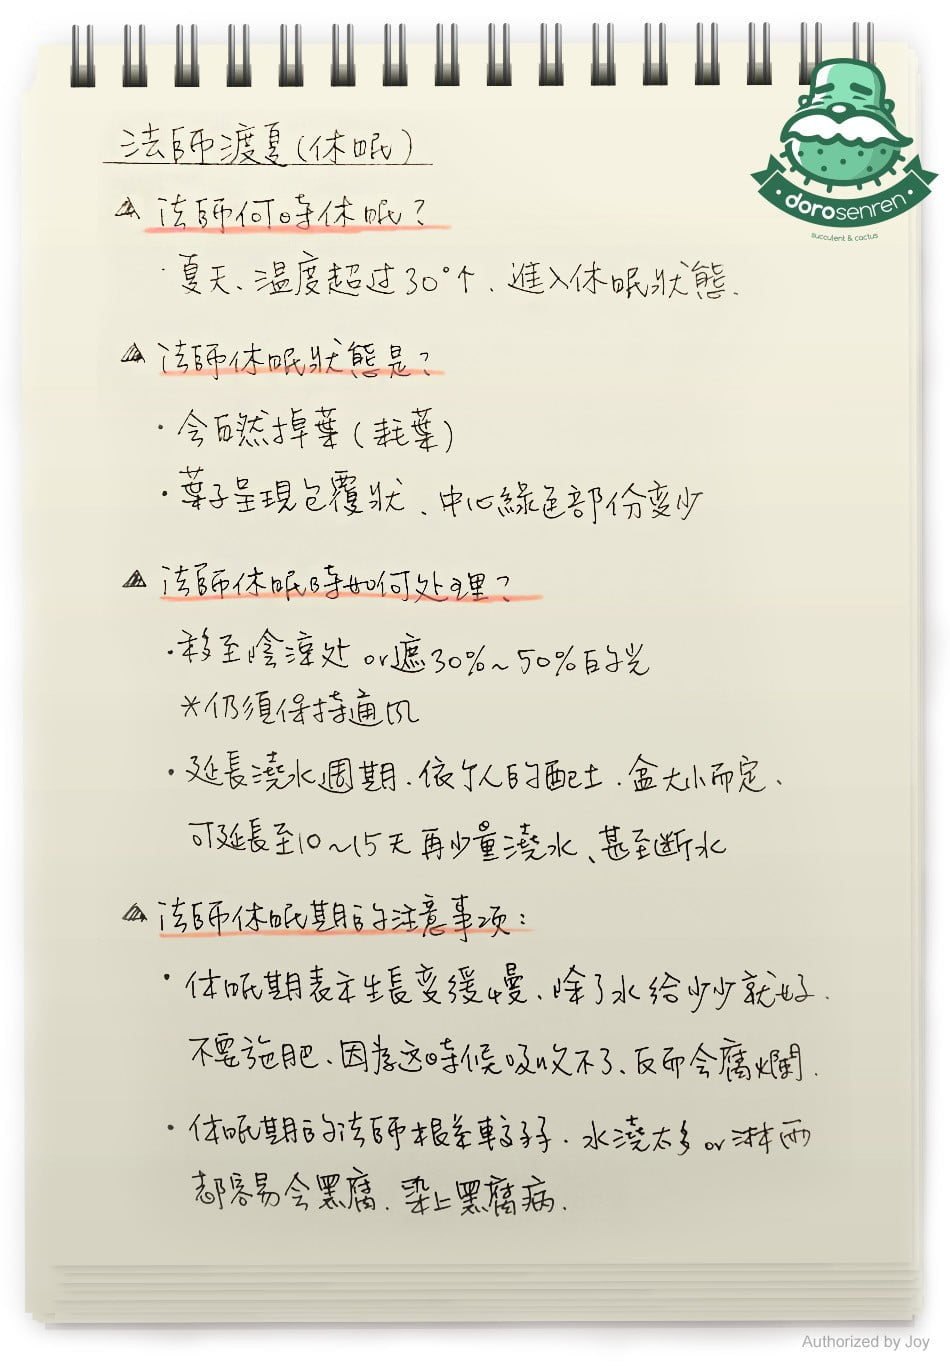 法師渡夏(休眠)
dorosenren
succulent & cactus
法師何時休眠?
·夏天、溫度超过30°↑、進入休眠狀態.
法師休眠狀態是?
·会自然掉葉(耗葉)
·葉子呈現包覆狀、中心綠色部份变少
法師休眠時如何处理?
·移至陰涼处 or遮30%~50%的光
*仍須保持通风
·延長澆水週期.依个人的配土.盆大小而定、
可延長至10~15天再少量澆水、甚至断水
法師休眠期的注意事项:
·休眠期表示生長变緩慢、除了水給少少就好.
不要施肥、因為这時候吸收不了、反而会腐爛.
·休眠期的法師根系較弱.水澆太多or淋雨
都容易会黑腐.染上黑腐病.
Authorized by Joy